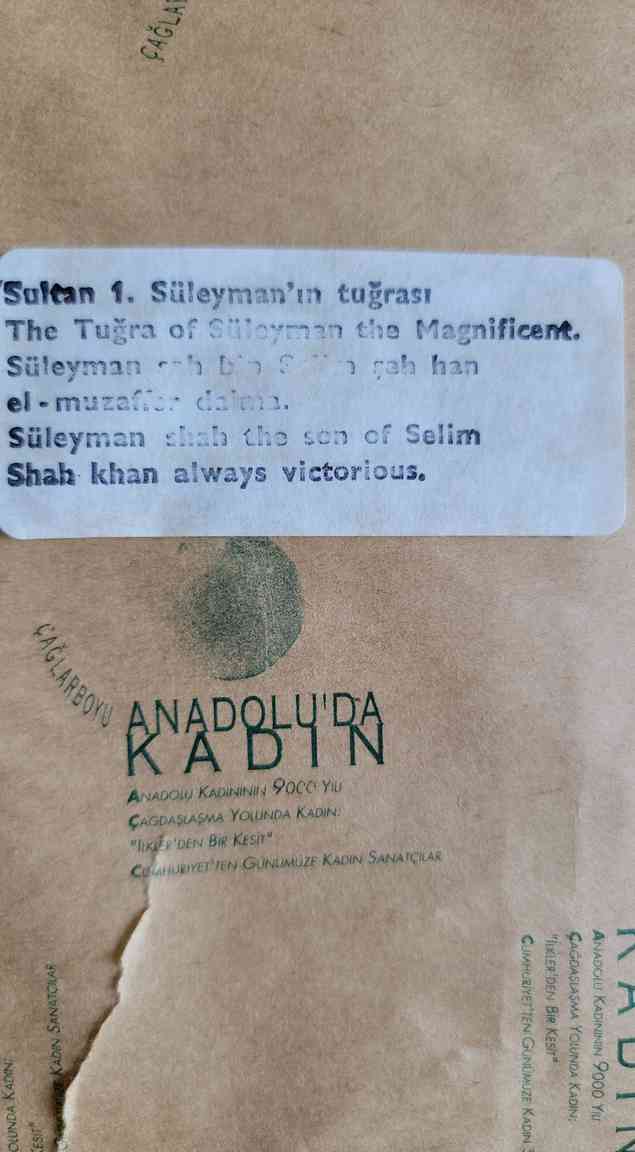 ÇAĞLAR
Sultan 1. Süleyman'ın tuğrası
The Tuğra of Süleyman the Magnificent.
Süleyman şah bin Selim şah han
el-muzaffer daima.
Süleyman shah the son of Selim
Shah khan always victorious.
ÇAĞLARBOYU
ANADOLU'DA
KADIN
ANADOLU KADINININ 9000 YILI
ÇAĞDAŞLAŞMA YOLUNDA KADIN:
"İLKLER'DEN BİR KESİT"
CUMHURİYET'TEN GÜNÜMÜZE KADIN SANATÇILAR
KADIN
ANADOLU KADINININ 9000 YILI
ÇAĞDAŞLAŞMA YOLUNDA KADIN:
"İLKLER'DEN BİR KESİT"
CUMHURİYET'TEN GÜNÜMÜZE KADIN
OLUNDA KADIN:
KESİT"
KADIN SANATÇILAR